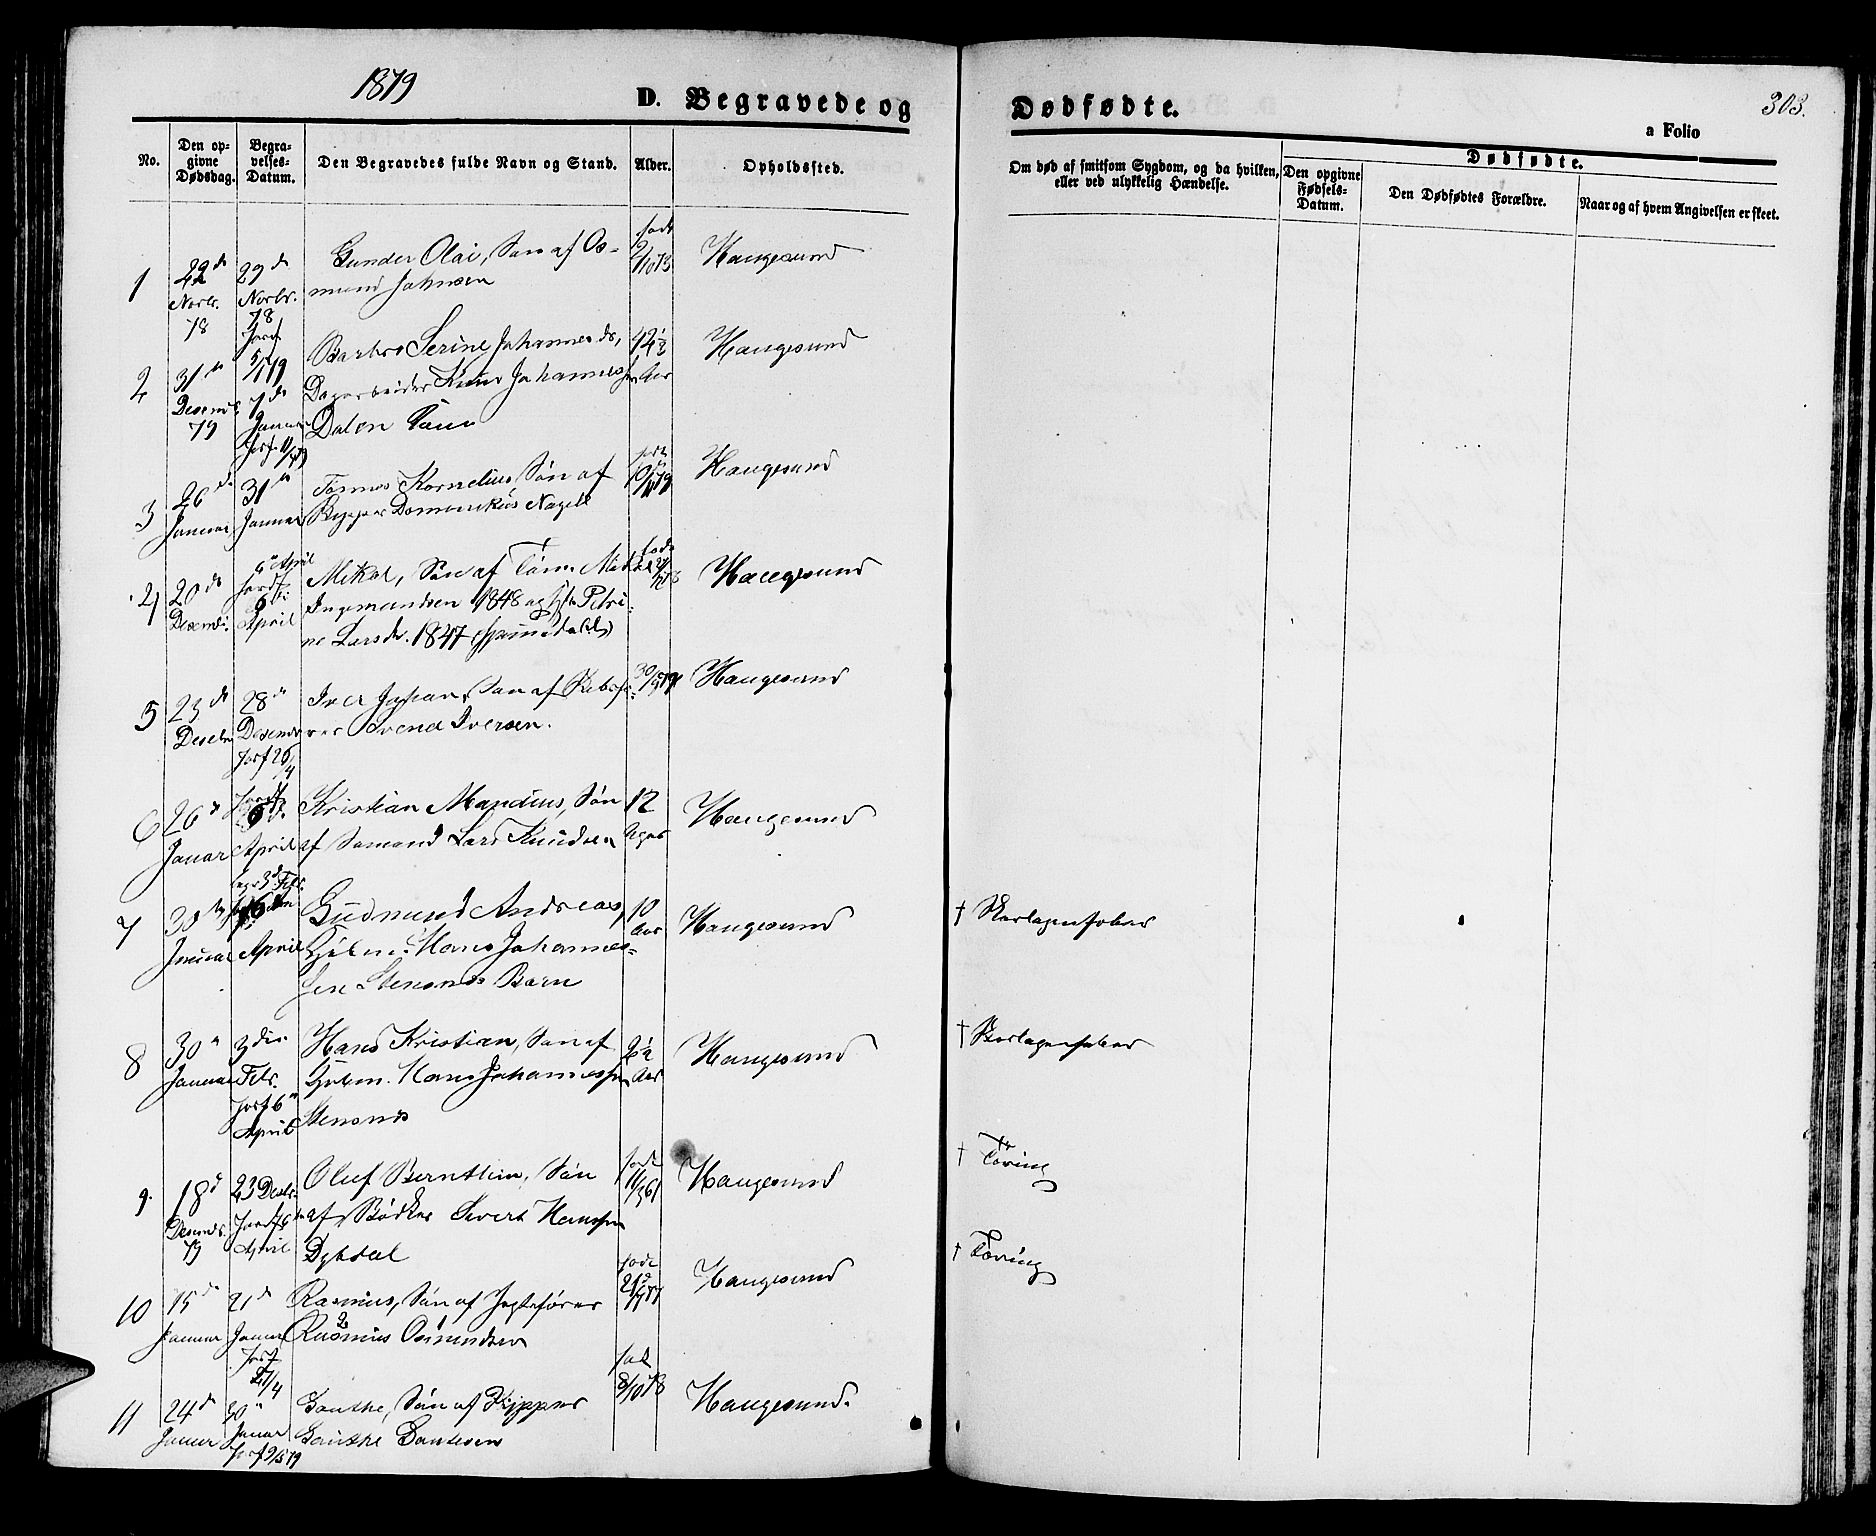 1879
D. Begravede og
Dødfødte.
303.
a Folio
No.
Den op-
givne
Dødsdag.
Begra-
velses-
Datum.
Den Begravedes fulde Navn og Stand.
Alder.
Opholdssted.
Om død af smitsom Sygdom, og da hvilken,
eller ved ulykkelig Hændelse.
Dødfødte.
Den opgivne
Fødsels-
Datum.
Den Dødfødtes Forældre.
Naar og af hvem Angivelsen er skeet.
1
22de
Novbr.
78
29de
Novbr.
78
Jordf
5/1 79
Gunder Olai, Søn af Os-
mund Johnsen
født
2/10 73
Haugesund
2
31te
Desembr
79
7de
Januar
Barbro Serine Johannesdr,
Dagarbeider Knud Johannessen
Dalen
42½
Aar
Haugesund
3
26de
Januar
31te
Januar
Tønnes Kornelius, Søn af
Domenikus Nagell
Haugesund
4
20de
Desembr.
April
Mikal, Søn af
Ingemundsen 1848 og Petri-
ne Larsdr. 1847
født
Haugesund
5
23de
Desebr
28de
Desembr
Jordf 26/4
Iver Johan, Søn af Rebsla-
ger Svend Iversen.
Haugesund
6
26de
Januar
Jordf
6te
April
Kristian Mandius, Søn
af Sømand Lars Knudsen
12
Uger
Haugesund
7
30te
Januar
begr 3de Febr.
April
Gudmund Andreas,
Hans Johannes-
sen Stensnæs Barn
10
Aar
Haugesund
† Skarlagensfeber
8
30te
Januar
3die
Febr.
Jordf 6te
April
Hans Kristian, Søn af
Hans Johannessen
Stensnæs
2½
Aar
Haugesund
† Skarlagensfeber
9.
18de
Desembr
79
23 Desbr.
Jordf 6te
April
Oluf Bernthin, Søn
af Bødker Sivert Hanssen
Dybdal
født
11/3 61
Haugesund
† Tæring
10
15de
Januar
21de
Januar
Jordf
21/4
Rasmus, Søn af Jagtefører
Rasmus Osmundsen
født
Haugesund
† Tæring
11
24de
Januar
30te
Januar
Jordf 9/5 79
Gauthe, Søn af Skipper
Gauthe Gautesen
født
8/10 78
Haugesund.